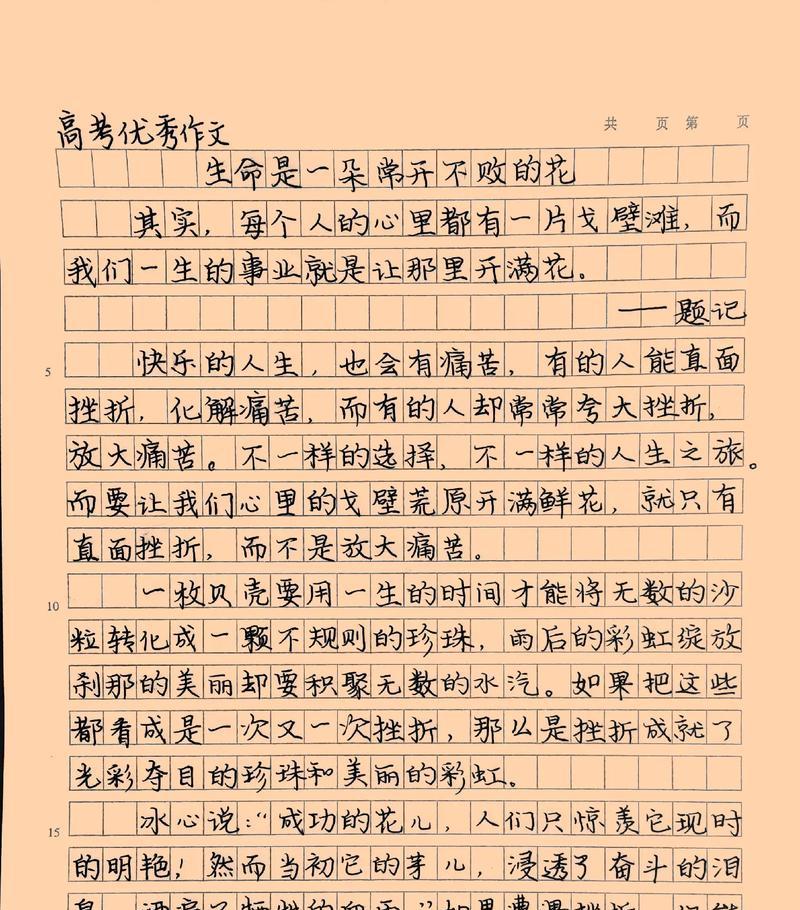 高考优秀作文
共 页 第 页
生命是一朵常开不败的花
其实，每个人的心里都有一片戈壁滩，而
我们一生的事业就是让那里开满花。
——题记
5
快乐的人生，也会有痛苦，有的人能直面
挫折，化解痛苦，而有的人却常常夸大挫折，
放大痛苦。不一样的选择，不一样的人生之旅。
而要让我们心里的戈壁荒原开满鲜花，就只有
直面挫折，而不是放大痛苦。
10
一枚贝壳要用一生的时间才能将无数的沙
粒转化成一颗不规则的珍珠，雨后的彩虹绽放
刹那的美丽却要积聚无数的水汽。如果把这些
都看成是一次又一次挫折，那么是挫折成就了
光彩夺目的珍珠和美丽的彩虹。
15
冰心说：“成功的花儿，人们只惊羡它现时
的明艳！然而当初它的芽儿，浸透了奋斗的泪